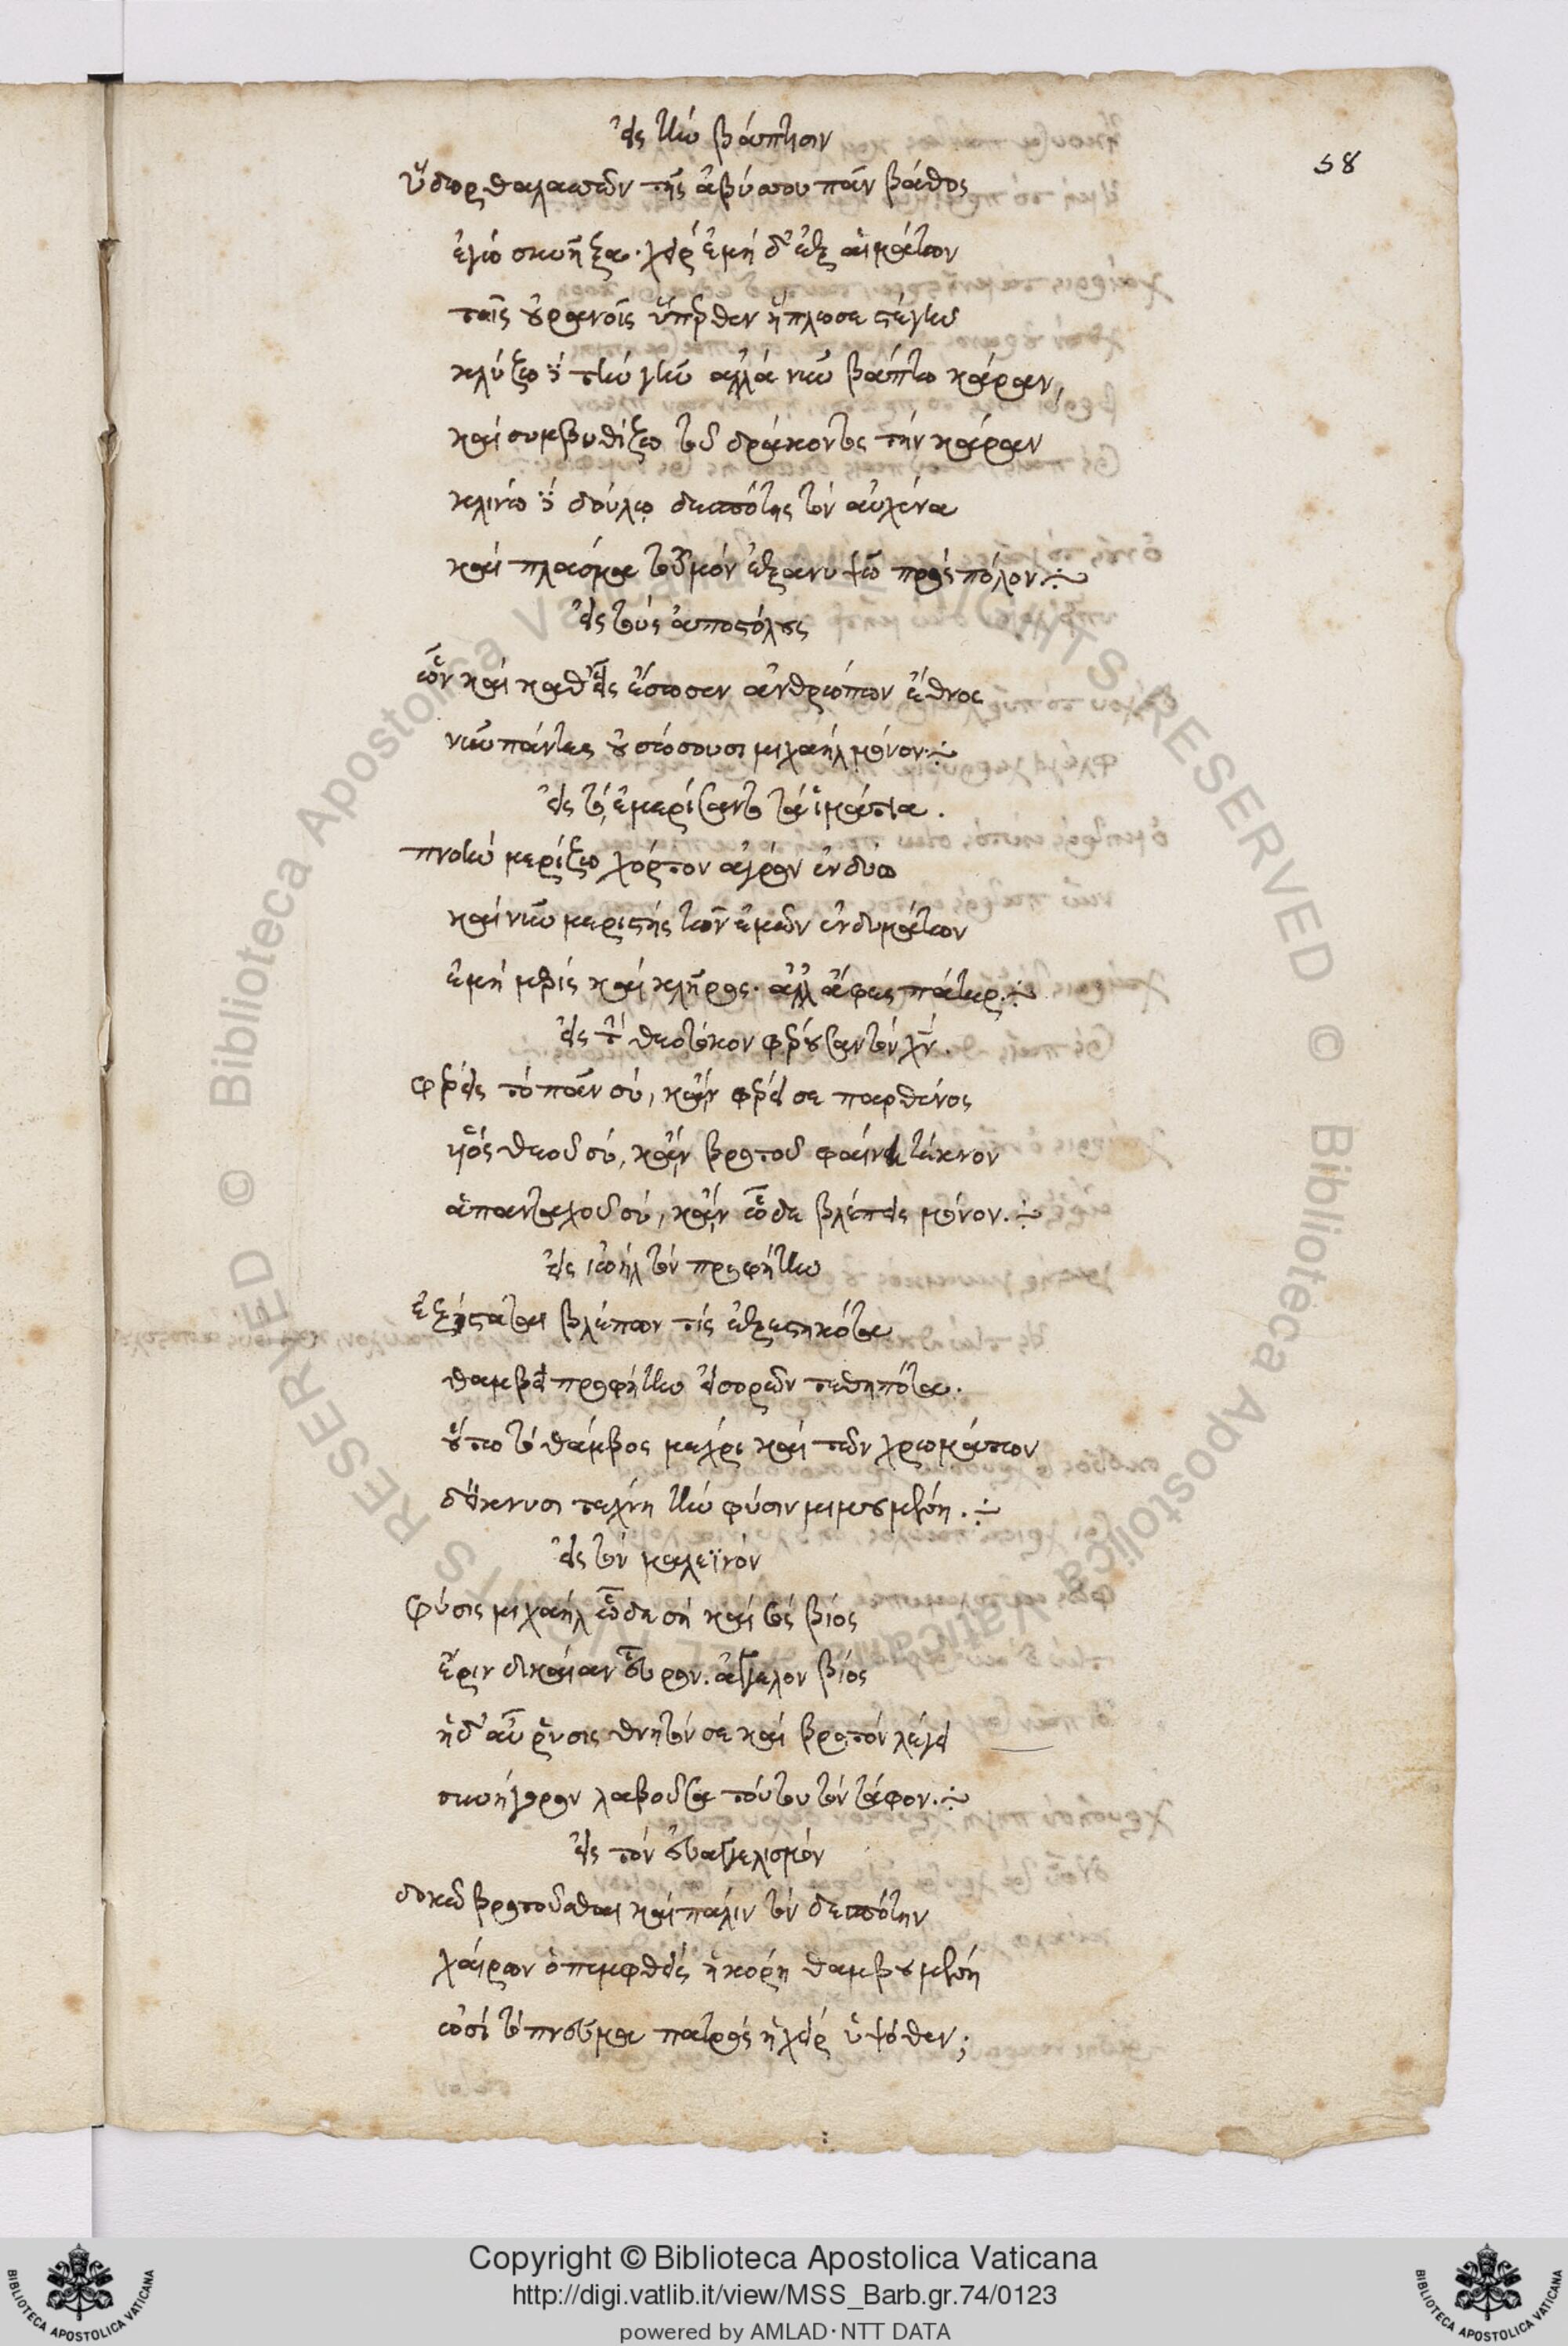 εἰς τὴν βάπτισιν
58
ὕδωρ θαλασσῶν τῆς ἀβύσσου πᾶν βάθος
ἐγὼ συνῆξα· χεὶρ ἐμὴ δ' ἐξ αἱμάτων
τοῖς οὐρανοῖς ὕπερθεν ἥπλωσε στέγην
κλύζω δὲ τὴν γῆν ἀλλὰ νῦν βάπτω κάραν,
καὶ συμβυθίζω τοῦ δράκοντος τὴν κάραν
κλινῶ δὲ δούλῳ δεσπότης τὸν αὐχένα
καὶ πλάσμα τοὐμὸν ἐξανυψῶ πρὸς πόλον·
εἰς τοὺς ἀποστόλους
ὧν καὶ καθεῖς ἔσωσεν ἀνθρώπων ἔθνος
νῦν πάντες οὐ σώσουσι μιχαὴλ μόνον·
εἰς τὸ, ἐμερίσαντο τὰ ἱμάτια.
πνοὴν μερίζω χόρτον ἀγρὸν ἐνδύω
καὶ νῦν μεριστὴς τῶν ἐμῶν ἐνδυμάτων
ἐμὴ μερὶς καὶ κλῆρος· ἀλλ' ἄφες πάτερ·
εἰς τὴν θεοτόκον φέρουσαν τὸν χν.
φέρεις τὸ πᾶν σύ, κἂν φέρει σε παρθένος
υἱὸς θεοῦ σύ, κἂν βροτοῦ φαίνῃ τέκνον
ἁπανταχοῦ σύ, κἂν ὧδε βλέπεις μόνον.
εἰς ἰωὴλ τὸν προφήτην
ἐξίσταται βλέπων τίς ἐξεστηκότα
θαμβεῖ προφήτην εἰσορῶν τεθηπότα.
οὕτω τὸ θάμβος μέχρι καὶ τῶν χρωμάτων
δείκνυσι τέχνη τὴν φύσιν μιμουμένη.
εἰς τὸν μαλεϊνόν
φύσις μιχαὴλ ὧδα σὴ καὶ σὸς βίος
ἔριν δικαίαν εὗρον. ἄγγελον βίος
ἡ δ' αὖ φύσις θνητόν σε καὶ βροτὸν λέγει
συνήγορον λαβοῦσα τούτου τὸν τάφον.
εἰς τὸν εὐαγγελισμόν
δοκεῖ βροτοῦσθαι καὶ πάλιν τὸν δεσπότην
χαίρων ὁ πεμφθεὶς ἡ κόρη θαμβουμένη
ὠσὶ τὸ πνεῦμα πατρὸς ἡ χεὶρ ὑψόθεν;
Copyright © Biblioteca Apostolica Vaticana
http://digi.vatlib.it/view/MSS_Barb.gr.74/0123
powered by AMLAD·NTT DATA